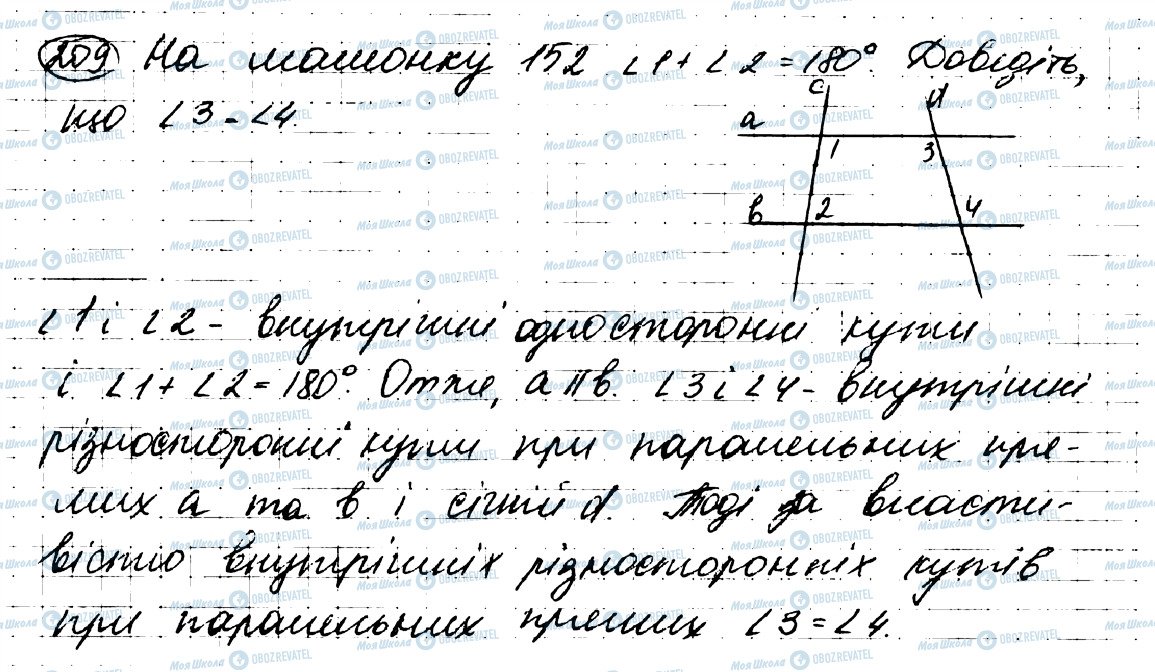 209 На малюнку 152 ∠1+∠2=180°. Доведіть,
що ∠3=∠4.
c
d
a
1
3
в
2
4
∠1 і ∠2 - внутрішні односторонні кути
і ∠1+∠2=180°. Отже, a||в. ∠3 і ∠4 - внутрішні
різносторонні кути при паралельних пря-
мих a та в і січній d. Тоді за власти-
вістю внутрішніх різносторонніх кутів
при паралельних прямих ∠3=∠4.
МояШкола OBOZREVATEL